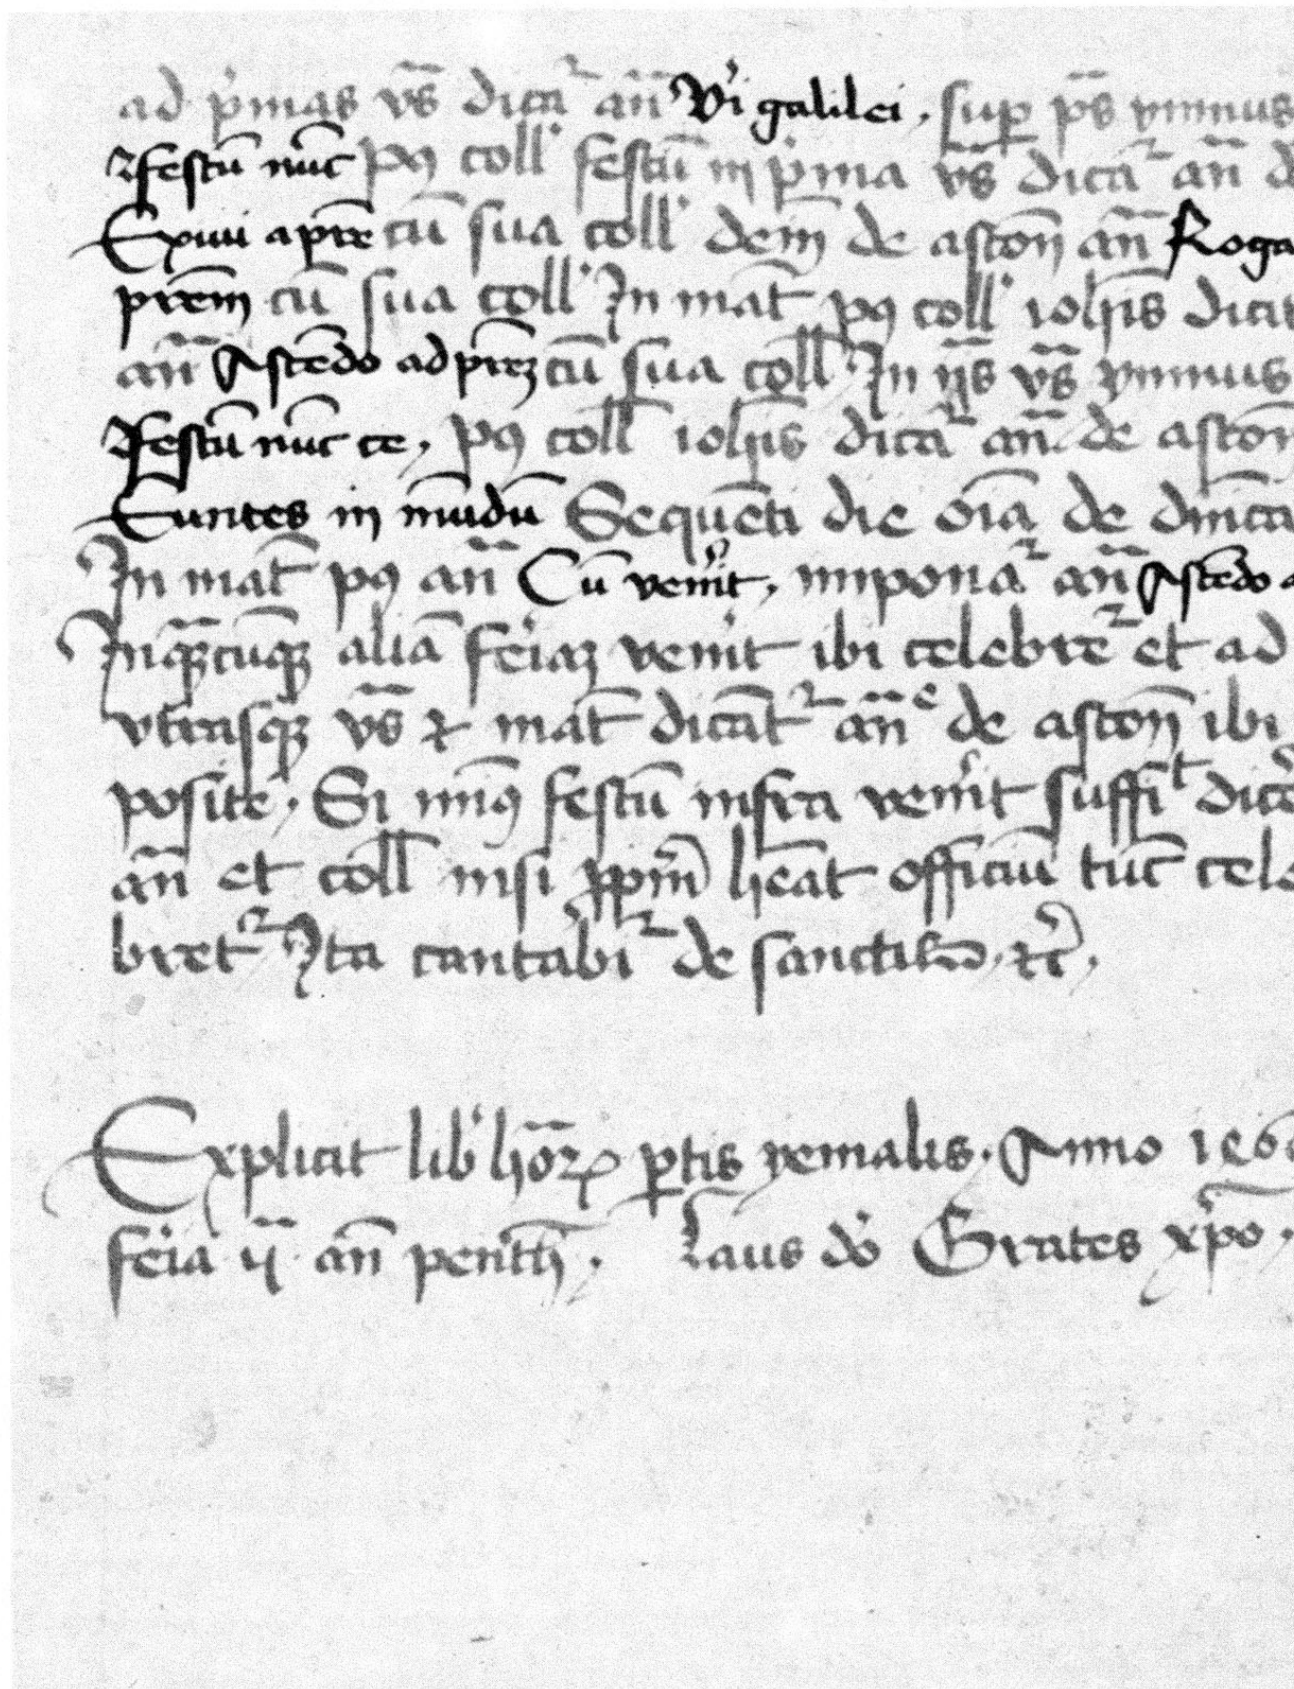 ad p'mas vs̄ dicat᷑ an̄ Viri galilei . sup ps̄ ymnus
Festū nūc p9 coll' festū in p'ma vs̄ dicat᷑ an̄
Exiui a pr̄e cū sua coll' dem̄ de ascen̄ an̄ Roga
pr̄em cū sua coll' In mat̄ p9 coll' ioh̄is dicit
an̄ Ascēdo ad pr̄eꝫ cū sua coll' In ijs vs̄ ymnus
Festū nūc te . p9 coll' ioh̄is dicat᷑ an̄ de ascen̄
Euntes in mūdū Sequēti die oīa de dnīca
In mat̄ p9 an̄ Cū ven'it . imponat᷑ an̄ Ascēdo
In quācūqꝫ aliā fe'iaꝫ ven'it ibi celebret᷑ et ad
vtrasqꝫ vs̄ ⁊ mat̄ dicāt᷑ an̄e de ascen̄ ibi
posite . Si min9 festū infra ven'it suffit dic'e
an̄ et coll' nisi ꝓp̄m h̄eat officiū tūc cele
bret᷑ Ita cantabit᷑ de sanctis ⁊c' .
Explicit lib' hōꝝ ptis yemalis . Anno
fe'ia ij an̄ penth̄ . Laus dō Grates xp̄o .